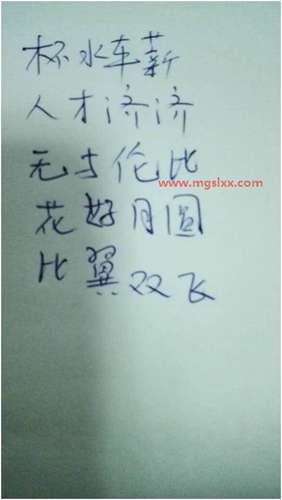 杯水车薪
人才济济
无与伦比
www.mgslxx.com
花好月圆
比翼双飞